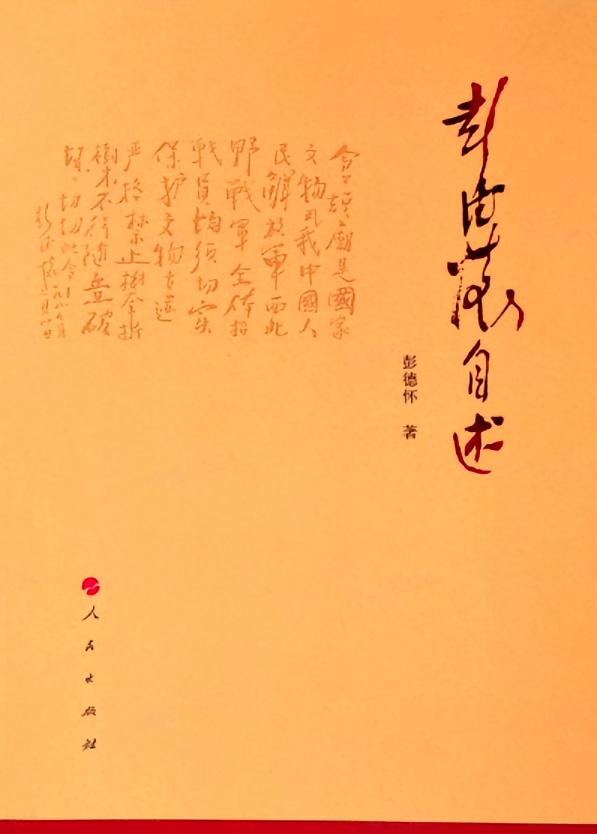 彭德懷自述
彭德怀 著
頡廟是國家
文物凡我中國人
民解放軍西北
野戰軍全体指
戰員均須切实
保护文物古迹
严格禁止攀折
樹木不得随意破
壞切切此令
彭德懷
人民出版社